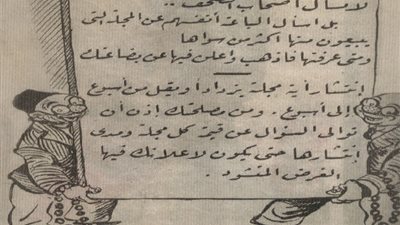 لا تسأل أصحاب الصحف ..
بل اسأل الباعة أنفسهم عن المجلة التى
يبيعون منها أكثر من سواها
ومتى عرفتها فاذهب وأعلن فيها عن بضاعتك
انتشار أية مجلة يزداد أو يقل من أسبوع
إلى أسبوع . ومن مصلحتك إذن أن
توالى السؤال عن قيمة كل مجلة ومدى
انتشارها حتى يكون لاعلانك فيها
الغرض المنشود .